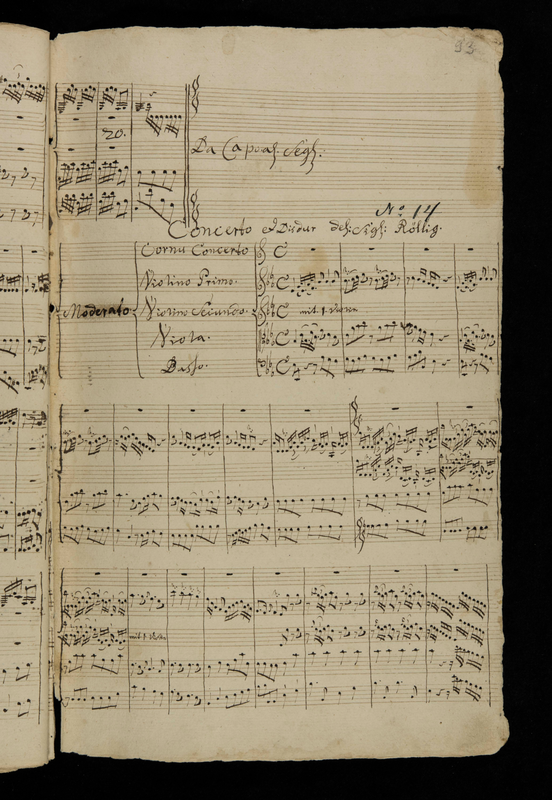 93
20.
Da Capo al Segl.
No 14
Concerto ex Dis dur del Sigl: Röllig.
Cornu Concerto
Violino Primo.
Moderato Violino Secundo. mit 1. Violin
Viola.
Basso.
mit 1. Violin